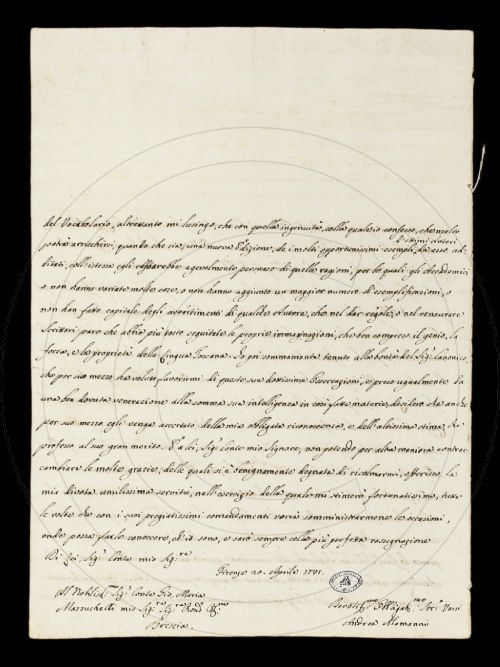 del Vocabolario, altrettanto mi lusingo, che con quella ingenuità, colla quale io confesso, che molto
d'ottimi Autori
potrà arricchirsi, quando che sia, una nuova Edizione, de i molti opportunissimi esempli, da esso ad-
ditati, coll'istessa egli agevolmente persuaso di quelle ragioni, per le quali gli Accademici
o non hanno variato molte cose, o non hanno aggiunto un maggior numero di esemplificazioni, o
non han fatto capitale degli avvertimenti di qualche Autore, che nel dar regole, o nel censurare
Scrittori pare che abbia più tosto seguitato le proprie immaginazioni, che ben compreso il genio, la
forza, e la proprietà della Lingua Toscana. Io poi sommamente tenuto alla bontà del Sigr. Canonico,
che per suo mezzo ha voluto favorirmi di queste sue dottissime Osservazioni, e preso ugualmente da
una ben dovuta venerazione alla somma sua intelligenza in così fatte materie, desidero che anche
per suo mezzo egli venga accertato della mia obbligata riconoscenza, e dell'altissima stima, che
professo al suo gran merito. E a Lei, Sigr. Conte mio Signore, non potendo per altra maniera contrac-
cambiare le molte grazie, delle quali si è benignamente degnata di ricolmarmi, offerisco la
mia divota umilissima servitù, nell'esercizio della quale mi stimerò fortunatissimo, tutte
le volte che con i suoi pregiatissimi comandamenti vorrà somministrarmene le occasioni,
onde possa farle conoscere, ch'io sono, e sarò sempre colla più perfetta rassegnazione
Di Lei, Sigr. Conte mio Sigre.
Firenze 20. Aprile 1741.
Al Nobiliss.mo Sigr. Conte Gio. Maria
Mazzuchelli mio Sigre.
Brescia.
Devotiss.mo Obbligat.mo Serv. Vero
Andrea Alamanni